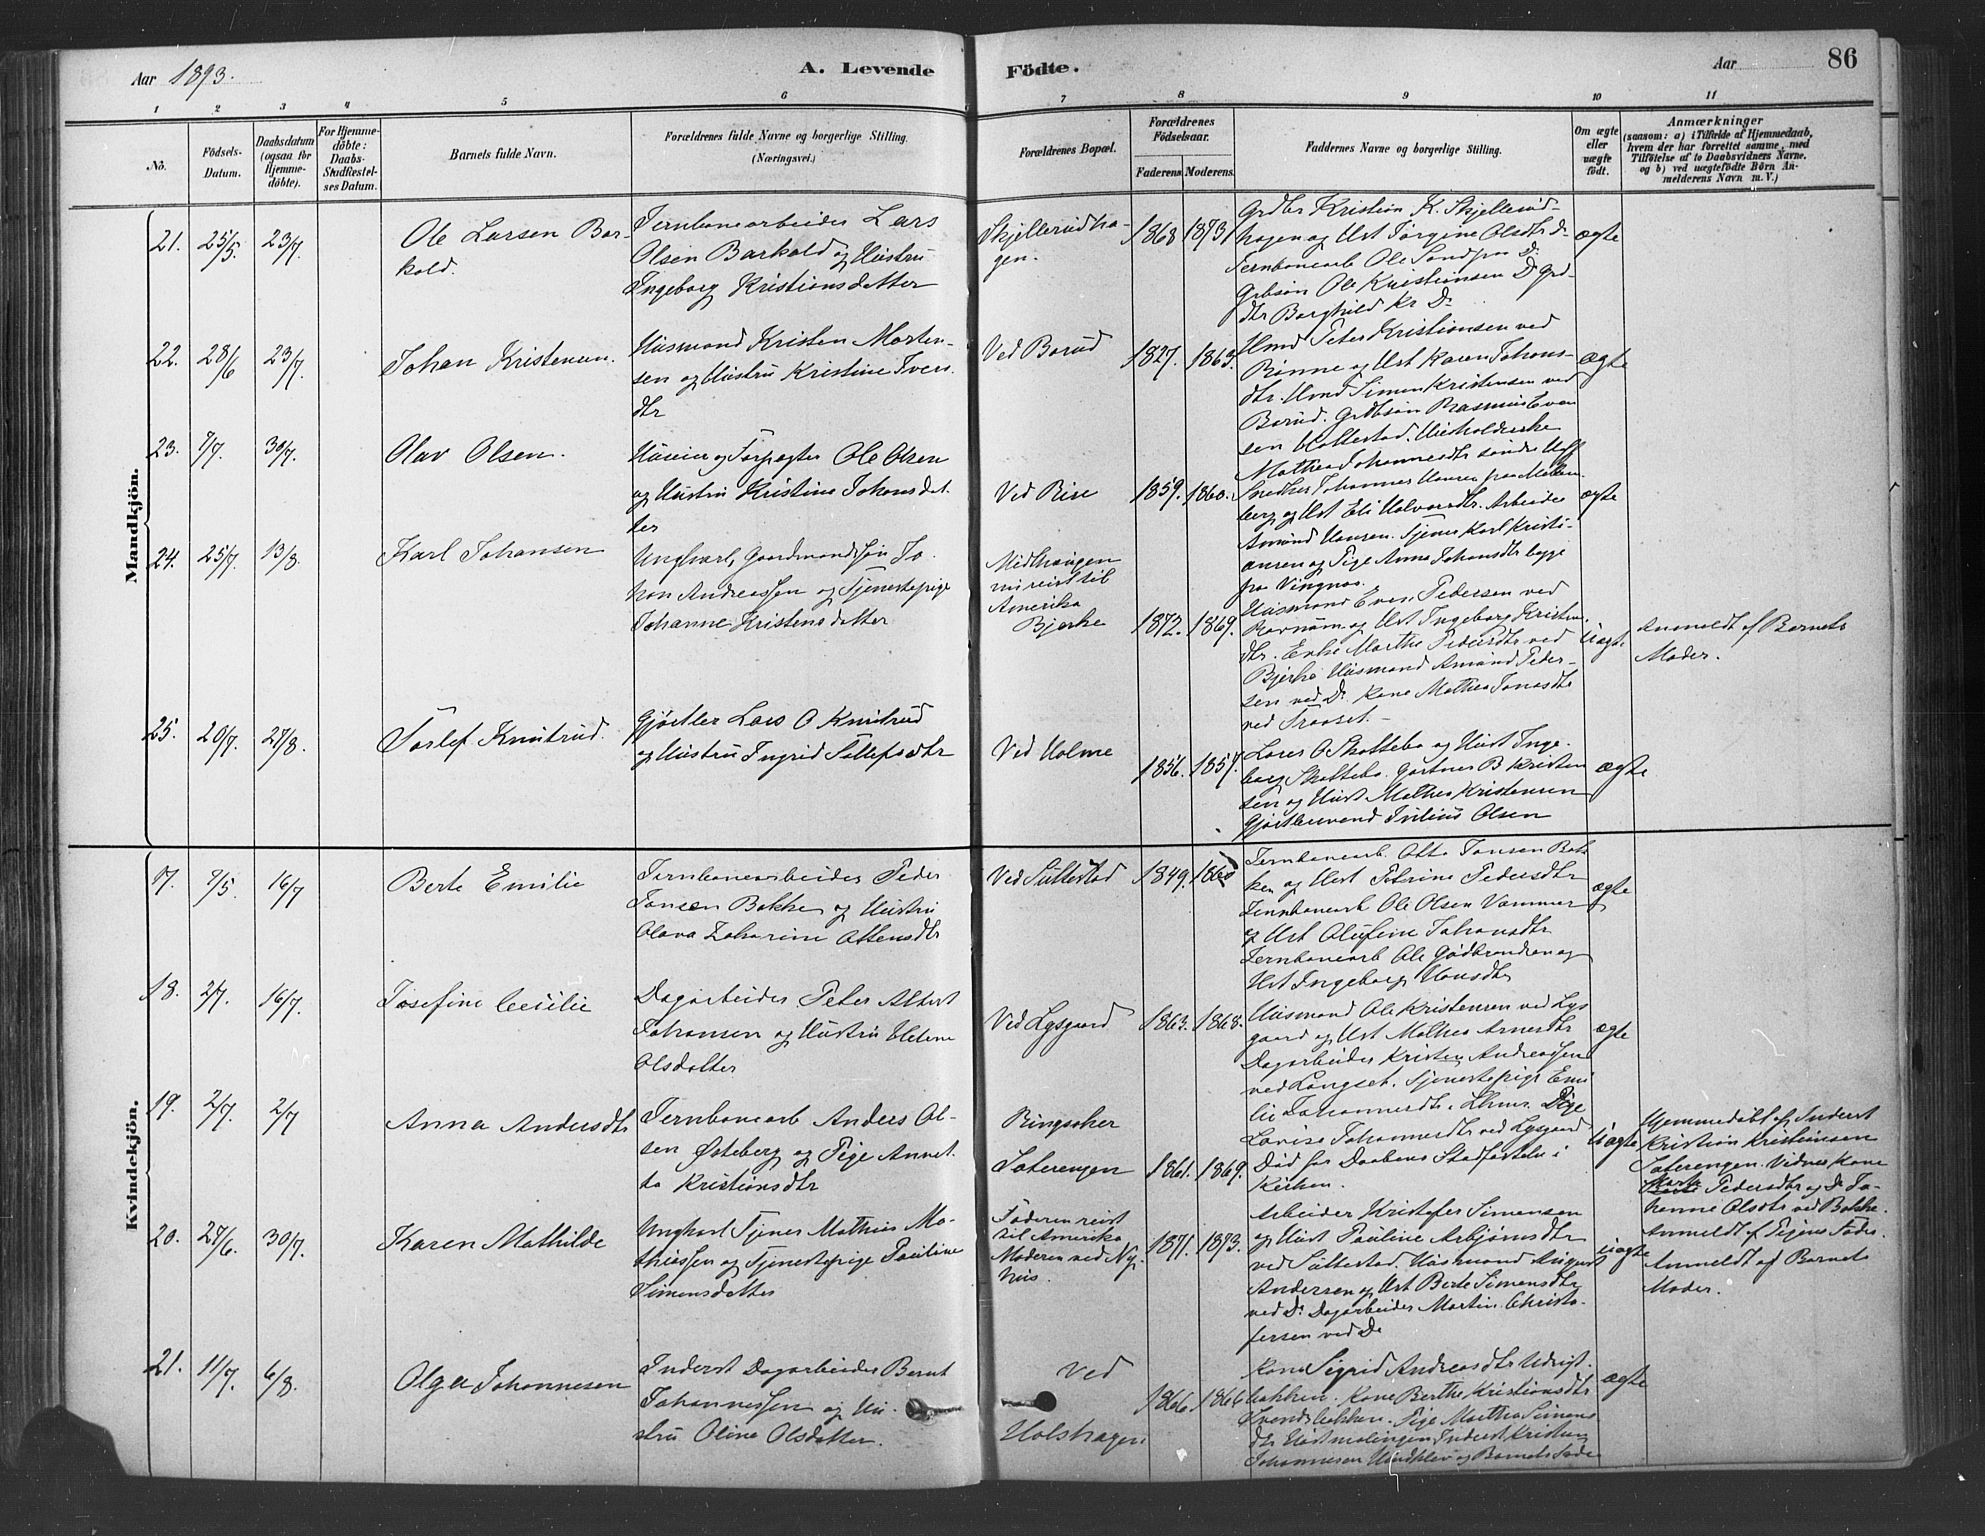 Aar 1893.
A. Levende Födte.
Aar
86
1 2 3 4 5 6 7 8 9 10 11
No.
Födsels-Datum.
Daabsdatum (ogsaa for Hjemmedöbte).
For Hjemmedöbte: Daabs-Stadfæstelses Datum.
Barnets fulde Navn.
Forældrenes fulde Navne og borgerlige Stilling. (Næringsvei.)
Forældrenes Bopæl.
Forældrenes Födselsaar.
Faderens Moderens.
Faddernes Navne og borgerlige Stilling.
Om ægte eller uægte födt.
Anmærkninger
(saasom: a) i Tilfælde af Hjemmedaab, hvem der har forrettet samme, med Tilföielse af to Daabsvidners Navne. og b) ved uægtefödte Börn Anmelderens Navn m. V.)
Mandkjön.
21. 25/5. 23/7.
Ole Larsen Barkald.
Jernbanearbeider Lars
Olsen Barkald og Hustru
Ingeborg Kristiansdatter
Skjellerudhagen.
1868 1873
Grdbr Kristian K. Skjellerud-
hagen og Ust Jørgine Olsdtr D-
Jernbanearb Ole
Grbsøn Ole Kristiansen D Grd-
dtr Borghild Kr D-
ægte
22. 28/6 23/7.
Johan Kristensen.
Husmand Kristen Morten-
sen og Hustru Kristine Ivers
dtr
Ved Borud
1827. 1863.
Hmd Peter Kristiansen ved
Rønne og Ust Karen Johans-
dtr. Hmd Simen Kristensen ved
Borud. Grdbsøn Rasmus Even
sen Holtestad.
Mathea Johannesdtr søndre
ægte
23. 7/7. 30/7.
Olav Olsen.
Huseier og Ole Olsen
og Hustru Kristine Johansdat-
ter
Ved Rise
1859. 1860.
Snedker Johannes Hansen paa
berg og Ust Eli Halvorsdtr. Arbeider
Amund Hansen. Tjener Karl Kristi-
ansen og Pige Anna Johansdtr begge
fra Vingnæs.
ægte
24. 25/7. 13/8.
Karl Johansen
Ungkarl, Gaardmandssøn Jo-
han Andreassen og Tjenestepige
Johanne Kristensdatter
Midthaugen
nu reist til
Amerika
Bjerke
1872. 1869.
Husmand Even Pedersen ved
Ravnum og Ust Ingeborg Kristens-
dtr. Enke Marthe Pedersdtr ved
Bjerke Husmand Amund Peder-
sen ved D- Kone Mathea Jonasdtr
ved Traaset. -
uægte
Anmeldt af Barnets
Moder.
25. 20/7. 27/8.
Torlef Knutrud.
Gjørtler Lars O Knutrud
og Hustru Ingrid Tollefsdtr
Ved Holme
1856. 1857.
Lars O Skattebo og Hust Inge-
borg Skattebo. Gartner B Kristen
sen og Hust Mathea Kristensen
Gjørtlersvend Julius Olsen
ægte
Kvindekjön.
17. 7/5. 16/7
Berte Emilie
Jernbanearbeider Peder
Jansen Bakke og Hustru
Olava Zakarine Ottensdtr
Ved Sultestad
1849. 1860
Jernbanearb. Otto Jansen Bak
ken og Ust Petrine Pedersdtr
Jernbanearb Ole Olsen Vammer
og Ust Olufine Johansdtr
Jernbanearb Ole Gudbrandsen og
Ust Ingeborg Hansdtr
ægte
18. 2/7. 16/7.
Josefine Cecilie
Dagarbeider Peter Albert
Johansen og Hustru Helene
Olsdatter
Ved Lysgaard
1863. 1868.
Husmand Ole Kristensen ved Lys
gaard og Ust Mathea Arnesdtr
Dagarbeider Kristen Andreassen
ved Langset. Tjenestepige Emi
lie Johannesdtr. Lhmr. Pige
Lovise Johannesdtr ved Lysgaard
ægte
19. 2/7. 2/7
Anna Andersdtr
Jernbanearb Anders Ol-
sen Østeberg og Pige Annet-
te Kristiansdtr
Ringsaker
Sæterengen
1861. 1869.
Død før Daabens Stadfæstelse i
Kirken.
uægte
Hjemmedøbt af Inderst
Kristian Kristiansen
Sæterengen. Vidner Kone
Marte Pedersdtr og D- Jo-
hanne Olsdtr ved Bakke.
Anmeldt af Pigens Fader.
20. 27/6. 30/7.
Karen Mathilde
Ungkarl Tjener Mathias Ma-
thiassen og Tjenestepige Pauline
Simensdatter
Faderen reist
til Amerika
Moderen ved Ny-
hus.
1871. 1873.
Arbeider Kristofer Simensen
og Ust Pauline Arbjørnsdtr
ved Sultestad. Husmand August
Andersen og Ust Berte Simensdtr
ved D- Dagarbeider Martin Christo-
fersen ved D-
uægte
Anmeldt af Barnets
Moder.
21. 11/7. 6/8.
Olga Johannesen
Inderst Dagarbeider Bernt
Johannessen og Hu-
stru Oline Olsdatter.
Ved
Holshagen
1866. 1866
Kone Sigrid Andreasdtr
bakken. Kone Berthe Kristiansdtr
Svendsbakken. Pige Marthea Simens
dtr Inderst Kristian
Johannesen og Barnets Fader
ægte